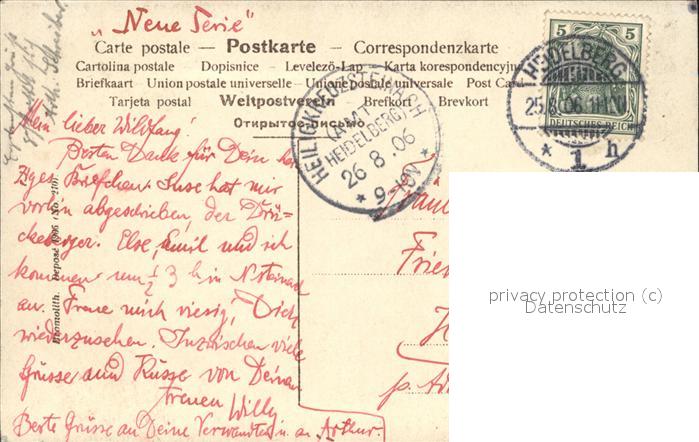 „Neue Serie"
Carte postale — Postkarte — Correspondenzkarte
Cartolina postale Dopisnice Levelező-Lap Karta korespondencyjna
Briefkaart Union postale universelle Unione postale universale Post Card
Tarjeta postal Weltpostverein Brefkort Brevkort
Открытое письмо
5 5
DEUTSCHES REICH
HEIDELBERG
25.8.06. 11-12V
* 1. h
HEILIGKREUZSTEINACH
(AMT HEIDELBERG)
26 8 .06
* 9-10V *
Mein lieber Wildfang!
Besten Dank für Dein her
ziges Briefchen. Suse hat mir
vorhin abgeschrieben, der Drü-
ckeberger. Else, Emil und ich
kommen um ½ 3 h in N.steinach
an. Freue mich riesig, Dich
wiederzusehen. Inzwischen viele
Grüsse und Küsse von Deinem
treuen Willy
Beste Grüsse an Deine Verwandten u. a. Arthur.
Dépose 1906 No. 2101
Fräu
Frie
H
p. Ad
privacy protection (c)
Datenschutz